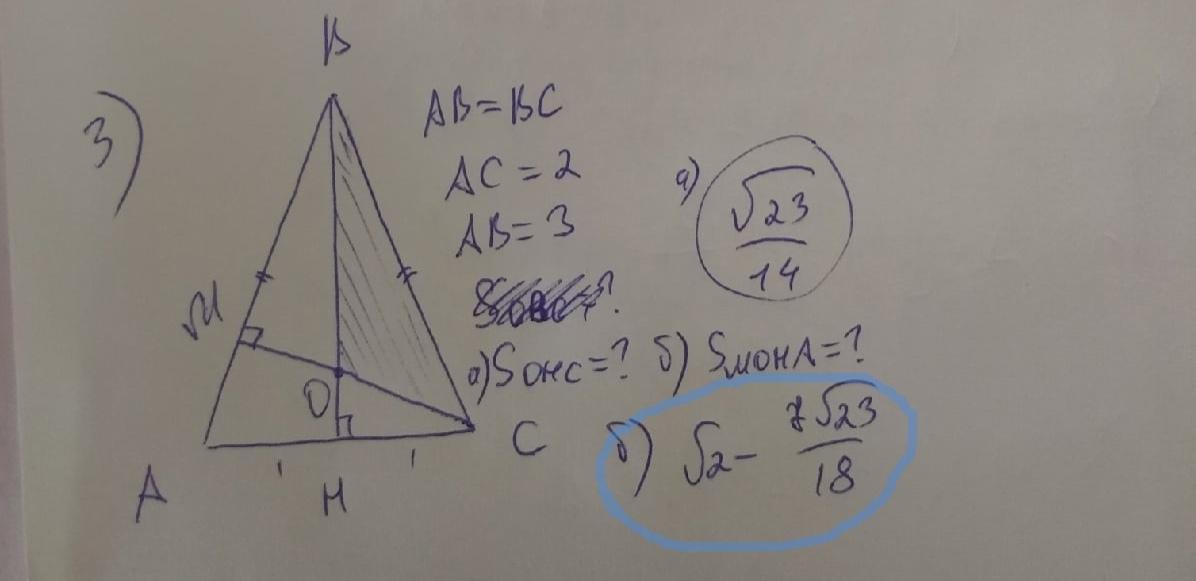 3)
B
AB=BC
AC=2
AB=3
а) √23/14
а) SОНС=? б) SМОНА=?
б) √2 - 7√23/18
M
O
A
H
C